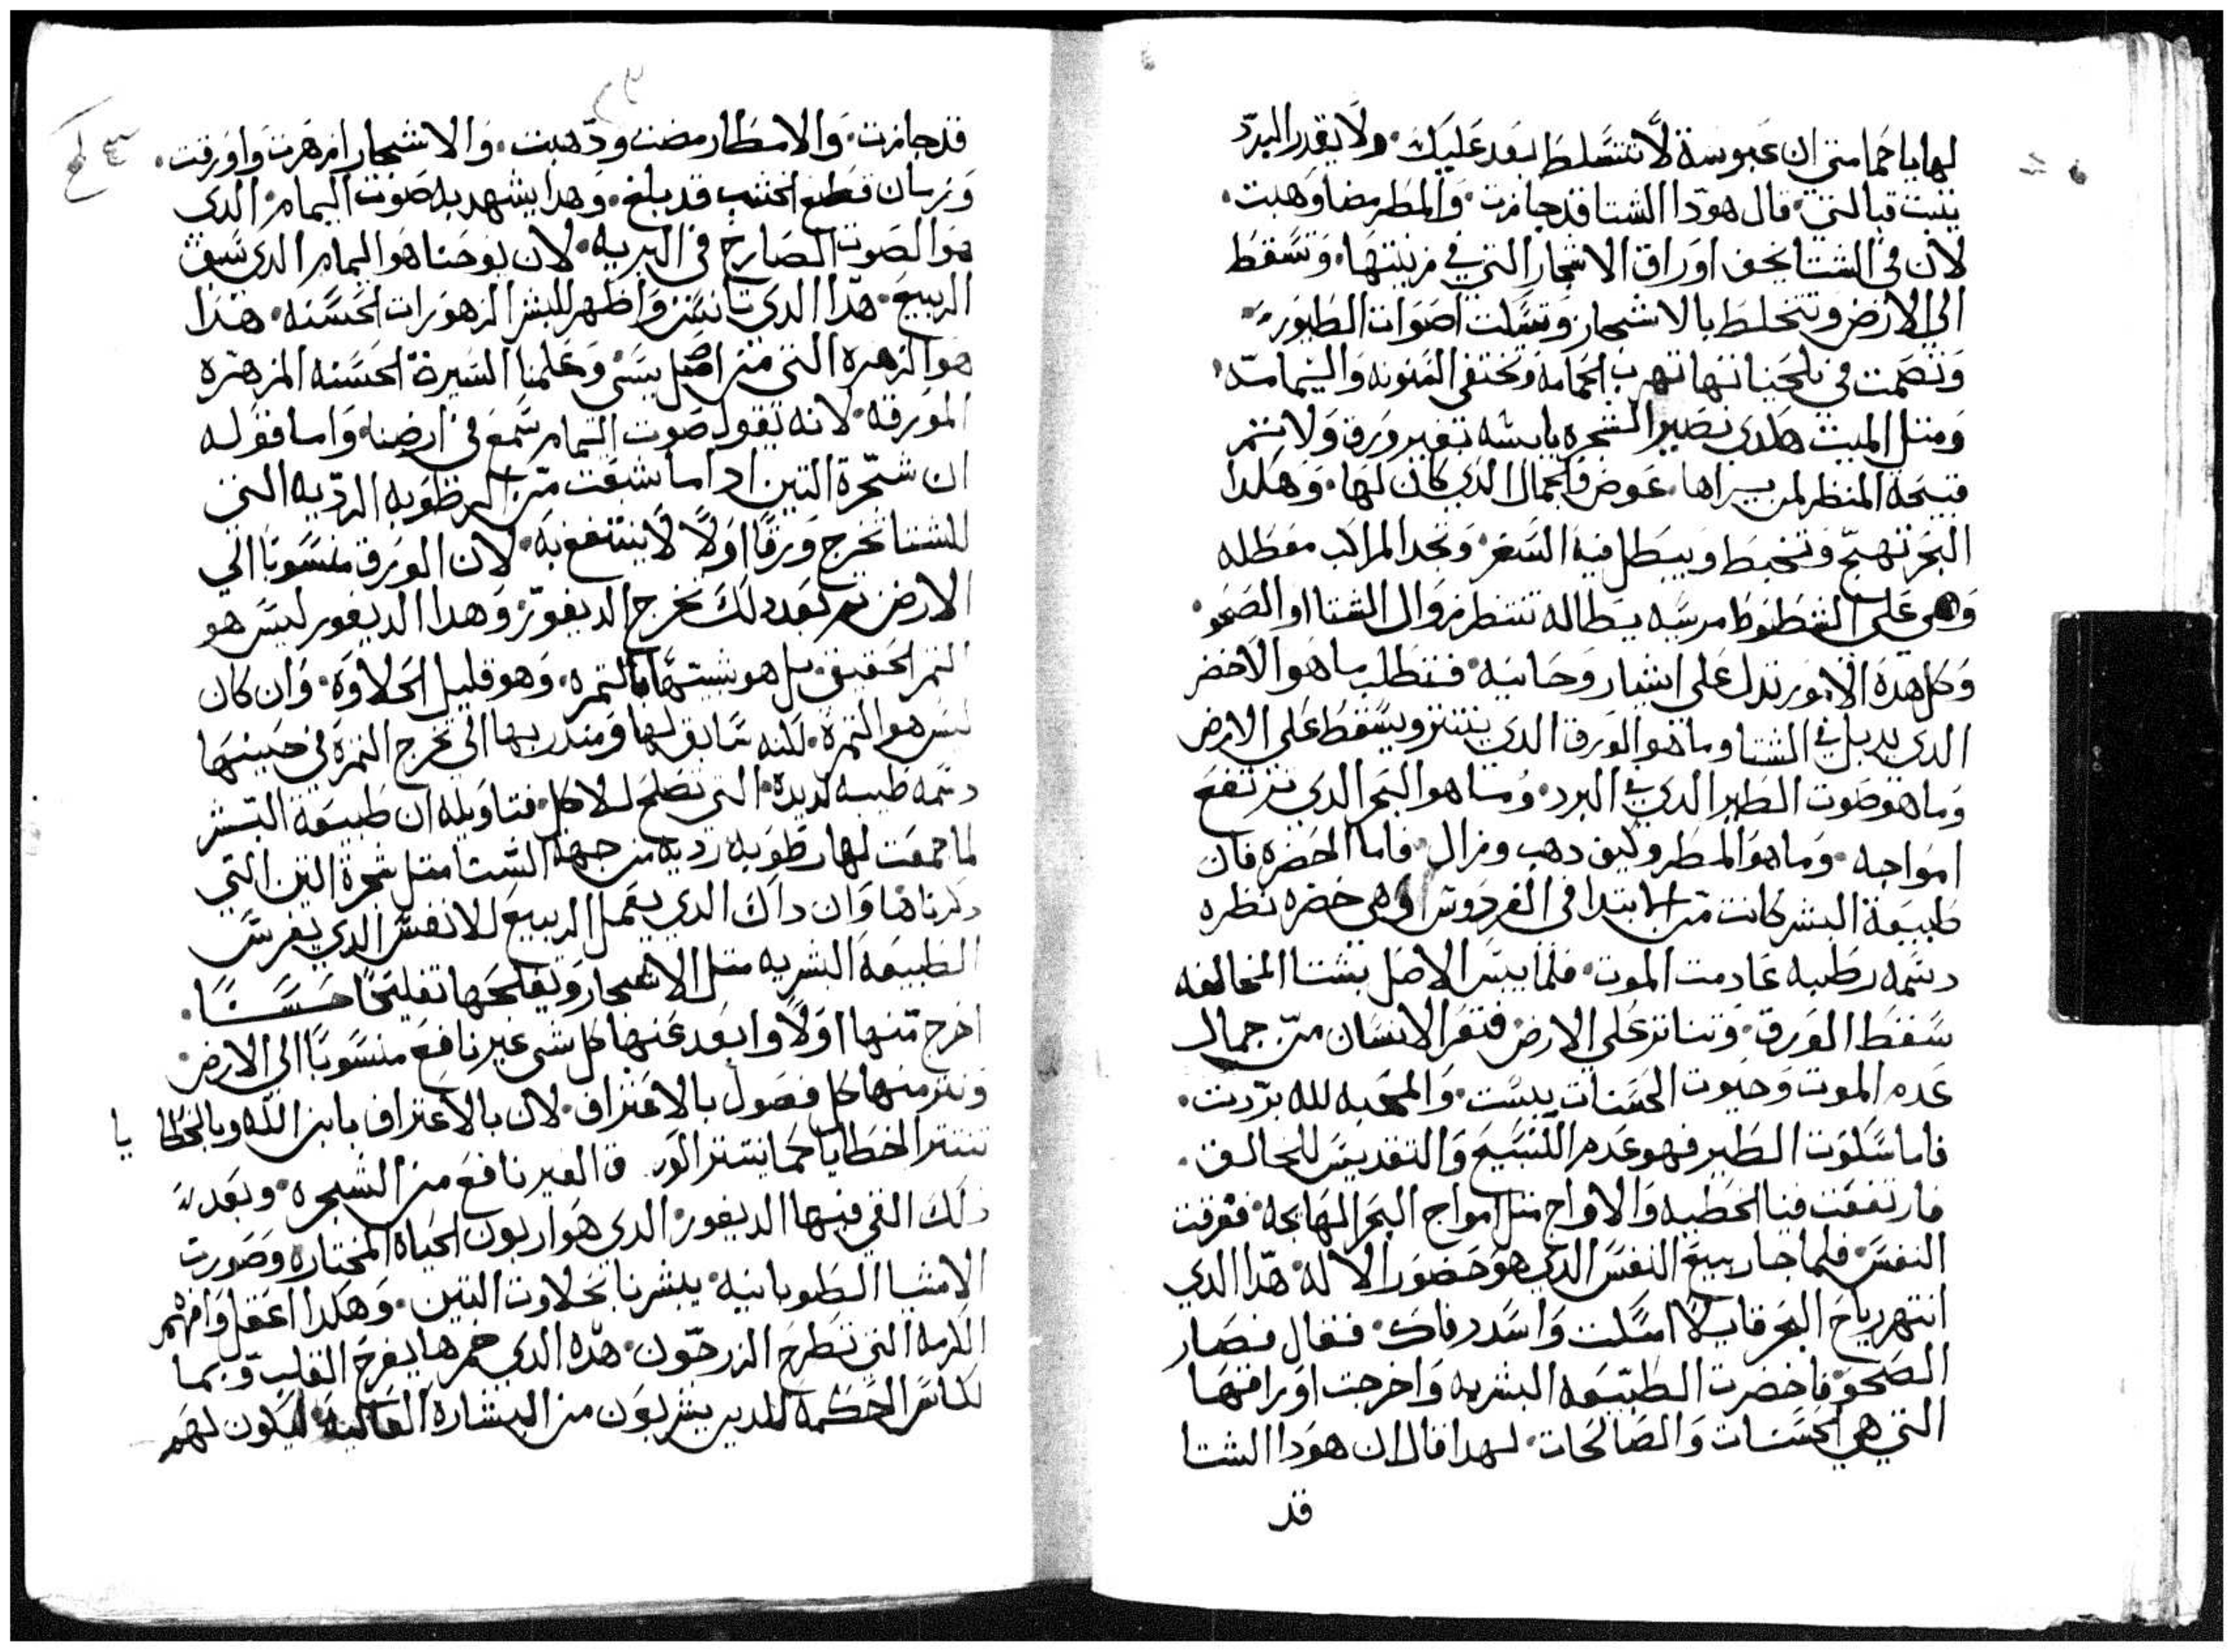 لها يا حمامتي ان عبوسة لا تتسلط بعد عليك. ولا يقدر البرد
يتبت قبالتي. قال هودا الشتا قد جازت. والمطر مضا وهبت.
لان في الشتا يجف اوراق الاشجار التي في زينتها. وتسقط
الي الارض وتتخلط بالاشجار وتسكت اصوات الطيور.
وتصمت في تلحيناتها تهرب الحمامة وتختفي السنونه واليمامه.
ومتل الميت هكدي تصير الشجره يابسه تغير ورق ولا تتمر
قبيحة المنظر لمن يراها. عوض فالجمال الدي كان لها. وهكدا
البحر تهيج وتخبط ويبطل فيه السفر. وتجد المراكب معطله
وهي علي الشطوط مرسيه بطاله تنتطر زوال الشتا او الصحو.
وكل هده الامور تدل علي اشيا روحانيه. فنطلب ما هو الاخضر
الدي يدبل في الشتا وما هو الورق الدي ينتتر ويسقط علي الارض
وما هو صوت الطير الدي في البرد. وما هو البحر الدي ترتفع
امواجه. وما هو المطر وكيف دهب وزال. فاما الخضره فان
طبيعة البشر كانت من الابتدا في الفردوس وهي خضره نظره
دسمه رطبه عادمت الموت. فلما يبس الاصل بشتا المخالفه
سقط الورق. وتناتر علي الارض فتعر الانسان من جمال
عدم الموت وحيوت الحسنات يبست. والمحبه لله بردت.
فاما سكوت الطير فهو عدم التسبيح والتقديس للخالق.
فارتفعت فينا الخطيه والافواج متل امواج البحر الهايجه. فغرقت
النفس فلما جا ربيع النفس الدي هو حضور الاله. هدا الدي
انتهر رياح البحر قايلا اسكت واسدد فاك. فقال فصار
الصحو. فاخضرت الطبيعه البشريه واخرجت اوراقها
التي هي الحسنات والصالحات. لهدا قال ان هودا الشتا
قد
قد جازت. والامطار مضت ودهبت. والاشجار ازهرت واورقت.
وزمان قطع الخشب قد بلغ. وهدا يشهد به صوت اليمام. الدي
هو الصوت الصارخ في البريه. لان يوحنا هو اليمام الدي سبق
الربيع. هدا الدي تانسن واظهر للبشر الزهورات الحسنه. هدا
هو الزهره التي من اصل يسي وعلمنا السيرة الحسنه المزهره
المورقه. لانه يقول صوت اليمام سمع في ارضنا. واما قوله
ان شجرة التين ادا ما شبعت من الرطوبه الرديه التي
للشتا تخرج ورقا اولا لا ينتفع به. لان الورق منسوبا الي
الارض تم بعد دلك تخرج الديفور. وهدا الديفور ليس هو
التمر الحقيقي. بل هو شبيها بالتمره. وهو قليل الحلاوه. وان كان
ليس هو التمرة. لكنه سابق لها ومندر بها الي تخرج التمرة في حينها
دسمه طيبه لديدة. التي تصلح للاكل. فتاويله ان طبيعة البشر
لما جمعت لها رطوبه رديه من جهة الشتا متل شجرة التين التي
دكرناها وان داك الدي يعمل الربيع للانفس الدي يغرس
الطبيعه البشريه متل الاشجار ويفلحها تفليحا حسنا.
اخرج منها اولا وابعد عنها كل شي غير نافع منسوبا الي الارض.
ونتر منها كل فضول بالاعتراف. لان بالاعتراف بابن الله وبالخطايا
تنتتر الخطايا كما ينتتر الورق الغير نافع من الشجره. وبعد
دلك القي فيها الديفور الدي هو اربون الحياه المختاره وصورت
الاشيا الطوبانيه. يبشرنا بحلاوت التين. وهكدا اعقل وافهم
الكرمه التي تطرح الزرجون. هده الدي خمرها يفرح القلب وبما
لكاس الحكمه للدين يشربون من البشاره العاليه. ليكون لهم